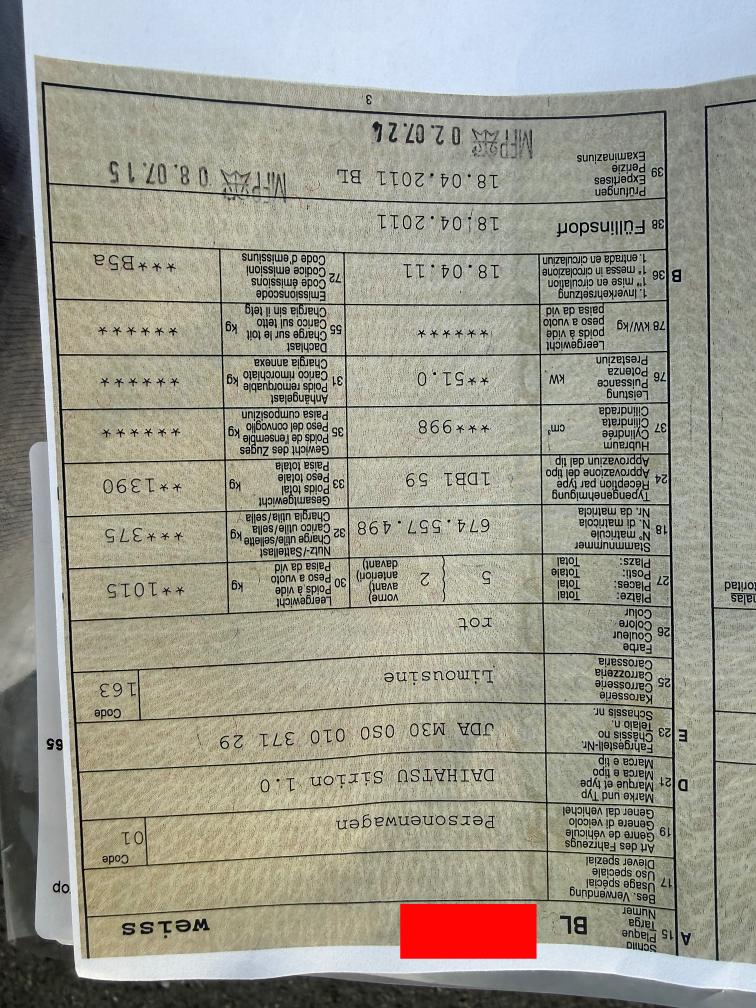 A 15 Schild
Plaque
Targa
Numer
BL
weiss
17 Bes. Verwendung
Usage spécial
Uso speciale
Diever spezial
19 Art des Fahrzeugs
Genre de véhicule
Genere di veicolo
Gener dal vehichel
Personenwagen
Code
01
D 21 Marke und Typ
Marque et type
Marca e tipo
Marca e tip
DAIHATSU Sirion 1.0
E 23 Fahrgestell-Nr.
Châssis no
Telaio n.
Schassis nr.
JDA M30 0S0 010 371 29
25 Karosserie
Carrosserie
Carrozzeria
Carossaria
Limousine
Code
163
26 Farbe
Couleur
Colore
Colur
rot
27 Plätze: Total
Places: Total
Posti: Totale
Plazs: Total
5
2
vorne)
avant)
anteriori)
davant)
30 Leergewicht
Poids à vide
Peso a vuoto
Paisa da vid
kg
**1015
18 Stammnummer
N° matricule
N. di matricola
Nr. da matricla
674.557.498
32 Nutz-/Sattellast
Charge utile/sellette
Carico utile/sella
Chargia utila/sella
kg
***375
24 Typengenehmigung
Réception par type
Approvazione del tipo
Approvaziun dal tip
1DB1 59
33 Gesamtgewicht
Poids total
Peso totale
Paisa totala
kg
**1390
37 Hubraum
Cylindrée
Cilindrata
Cilindrada
cm³
***998
35 Gewicht des Zuges
Poids de l'ensemble
Peso del convoglio
Paisa cumposiziun
kg
******
76 Leistung
Puissance
Potenza
Prestaziun
kW
**51.0
31 Anhängelast
Poids remorquable
Carico rimorchiato
Chargia annexa
kg
******
78 kW/kg Leergewicht
poids à vide
peso a vuoto
paisa da vid
******
55 Dachlast
Charge sur le toit
Carico sul tetto
Chargia sin il tetg
kg
******
B 36 1. Inverkehrsetzung
1re mise en circulation
1a messa in circolazione
1. entrada en circulaziun
18.04.11
72 Emissionscode
Code émissions
Codice emissioni
Code d'emissiuns
***B5a
38 Füllinsdorf
18.04.2011
39 Prüfungen
Expertises
Perizie
Examinaziuns
18.04.2011 BL
MFP 08.07.15
MFP 02.07.24
3